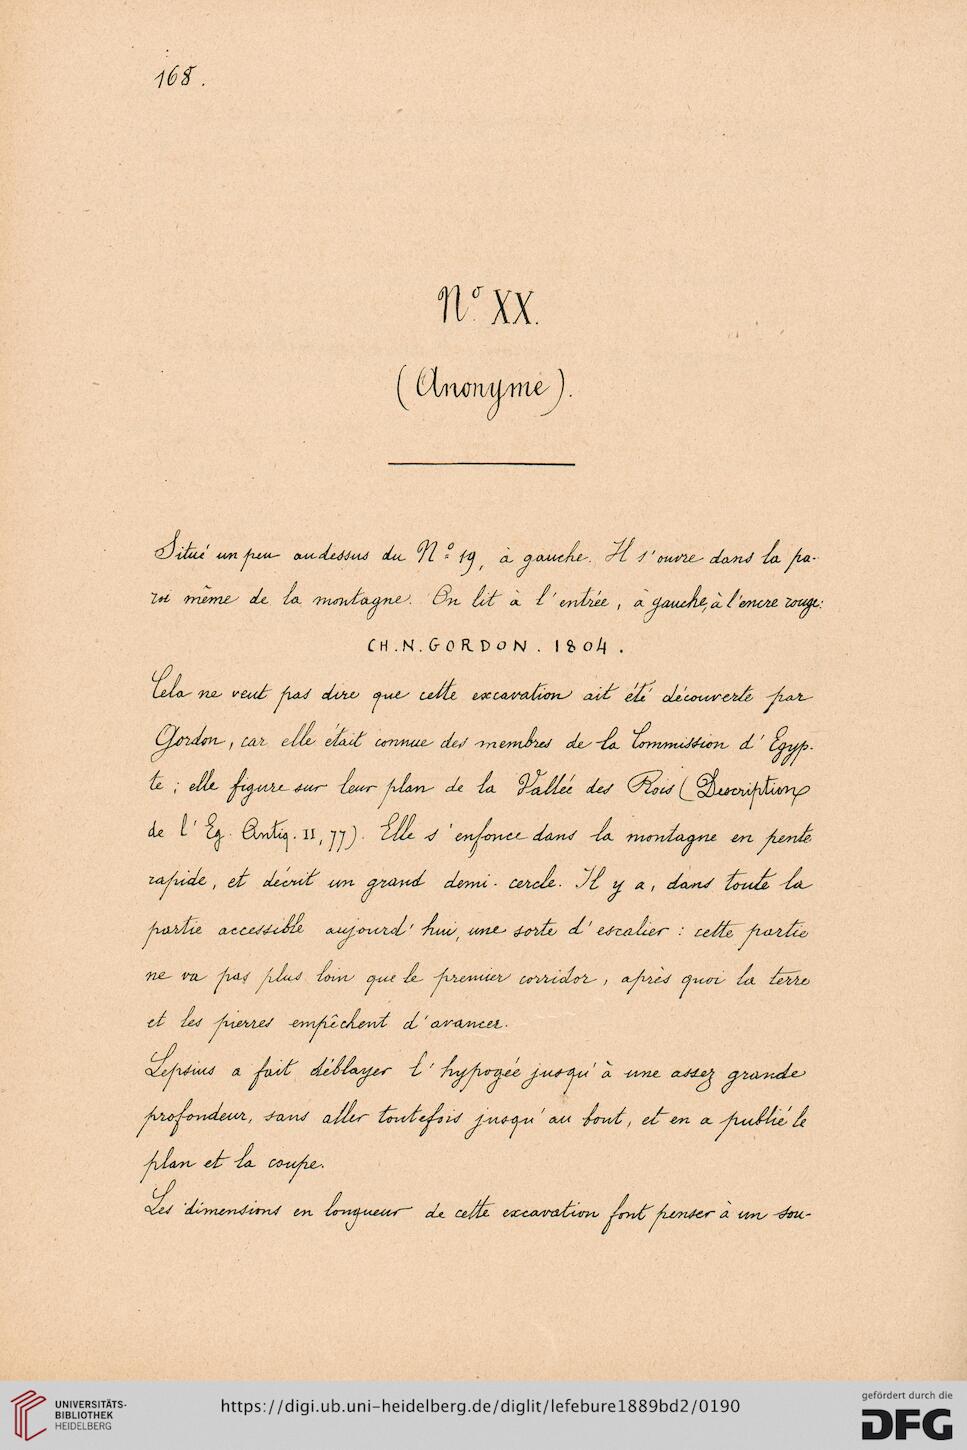 168.
Nº XX.
(Anonyme).
Situé un peu audessus du Nº 19, à gauche. Il s'ouvre dans la pa-
roi même de la montagne. On lit à l'entrée, à gauche, à l'encre rouge:
CH.N.GORDON. 1804.
Cela ne veut pas dire que cette excavation ait été découverte par
Gordon, car elle était connue des membres de la Commission d'Egyp-
te ; elle figure sur leur plan de la Vallée des Rois (Description
de l'Eg. Antiq. II, 77). Elle s'enfonce dans la montagne en pente
rapide, et décrit un grand demi-cercle. Il y a, dans toute la
partie accessible aujourd'hui, une sorte d'escalier : cette partie
ne va pas plus loin que le premier corridor, après quoi la terre
et les pierres empêchent d'avancer.
Lepsius a fait déblayer l'hypogée jusqu'à une assez grande
profondeur, sans aller toutefois jusqu'au bout, et en a publié le
plan et la coupe.
Les dimensions en longueur de cette excavation font penser à un sou-
UNIVERSITÄTS-
BIBLIOTHEK
HEIDELBERG
https://digi.ub.uni-heidelberg.de/diglit/lefebure1889bd2/0190
gefördert durch die
DFG